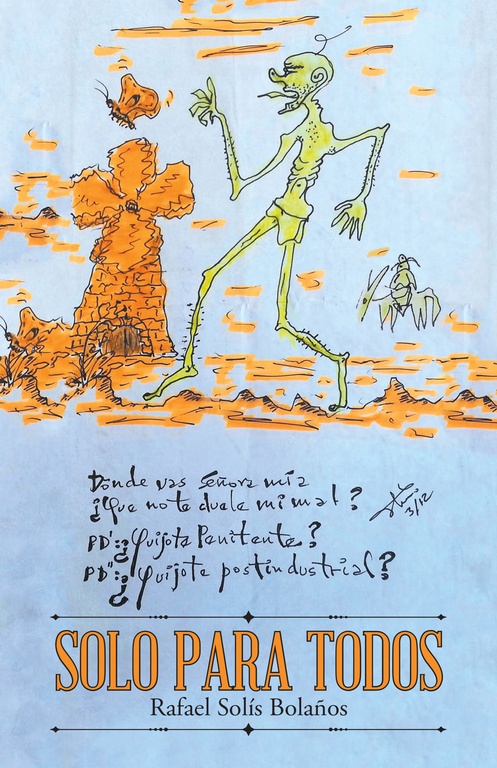 Donde vas Señora mía
¿Que no te duele mi mal? 3/12
PD': ¿Quijote Penitente?
PD": ¿Quijote postindustrial?
SOLO PARA TODOS
Rafael Solís Bolaños